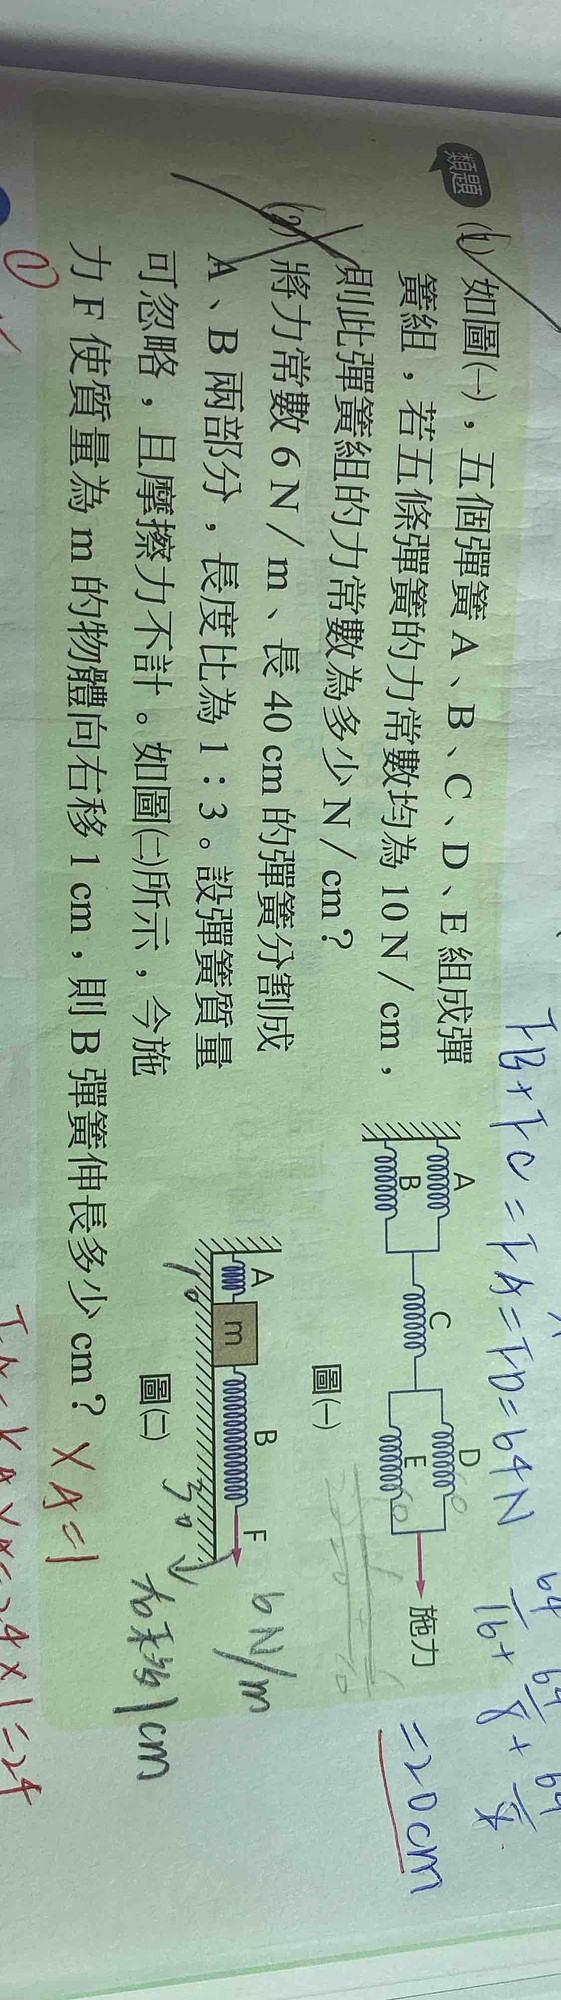 類題
(1) 如圖(一)，五個彈簧A、B、C、D、E組成彈
簧組，若五條彈簧的力常數均為10 N/cm，
則此彈簧組的力常數為多少N/cm？
(2) 將力常數6 N/m、長40 cm的彈簧分割成
A、B兩部分，長度比為1：3。設彈簧質量
可忽略，且摩擦力不計。如圖(二)所示，今施
力F使質量為m的物體向右移1 cm，則B彈簧伸長多少cm？
A
B
C
D
E
施力
圖(一)
A
m
B
F
圖(二)
10
30
6N/m
右移1cm
=20cm
XA=1